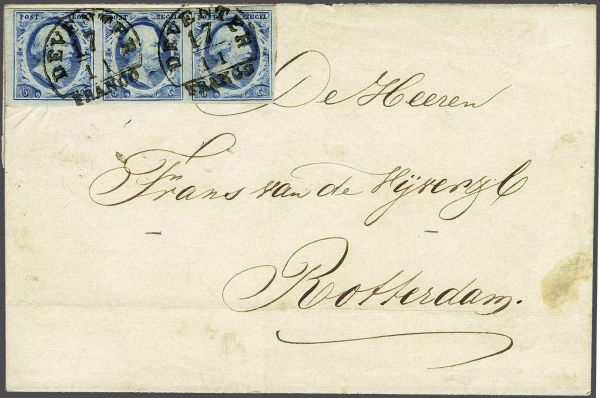 POST ZEGEL POST ZEGEL POST ZEGEL
5 C 5 C 5 C
DEVENTER
17
11
FRANCO
DEVENTER
17
11
FRANCO
De Heeren
Frans van de
Rotterdam.